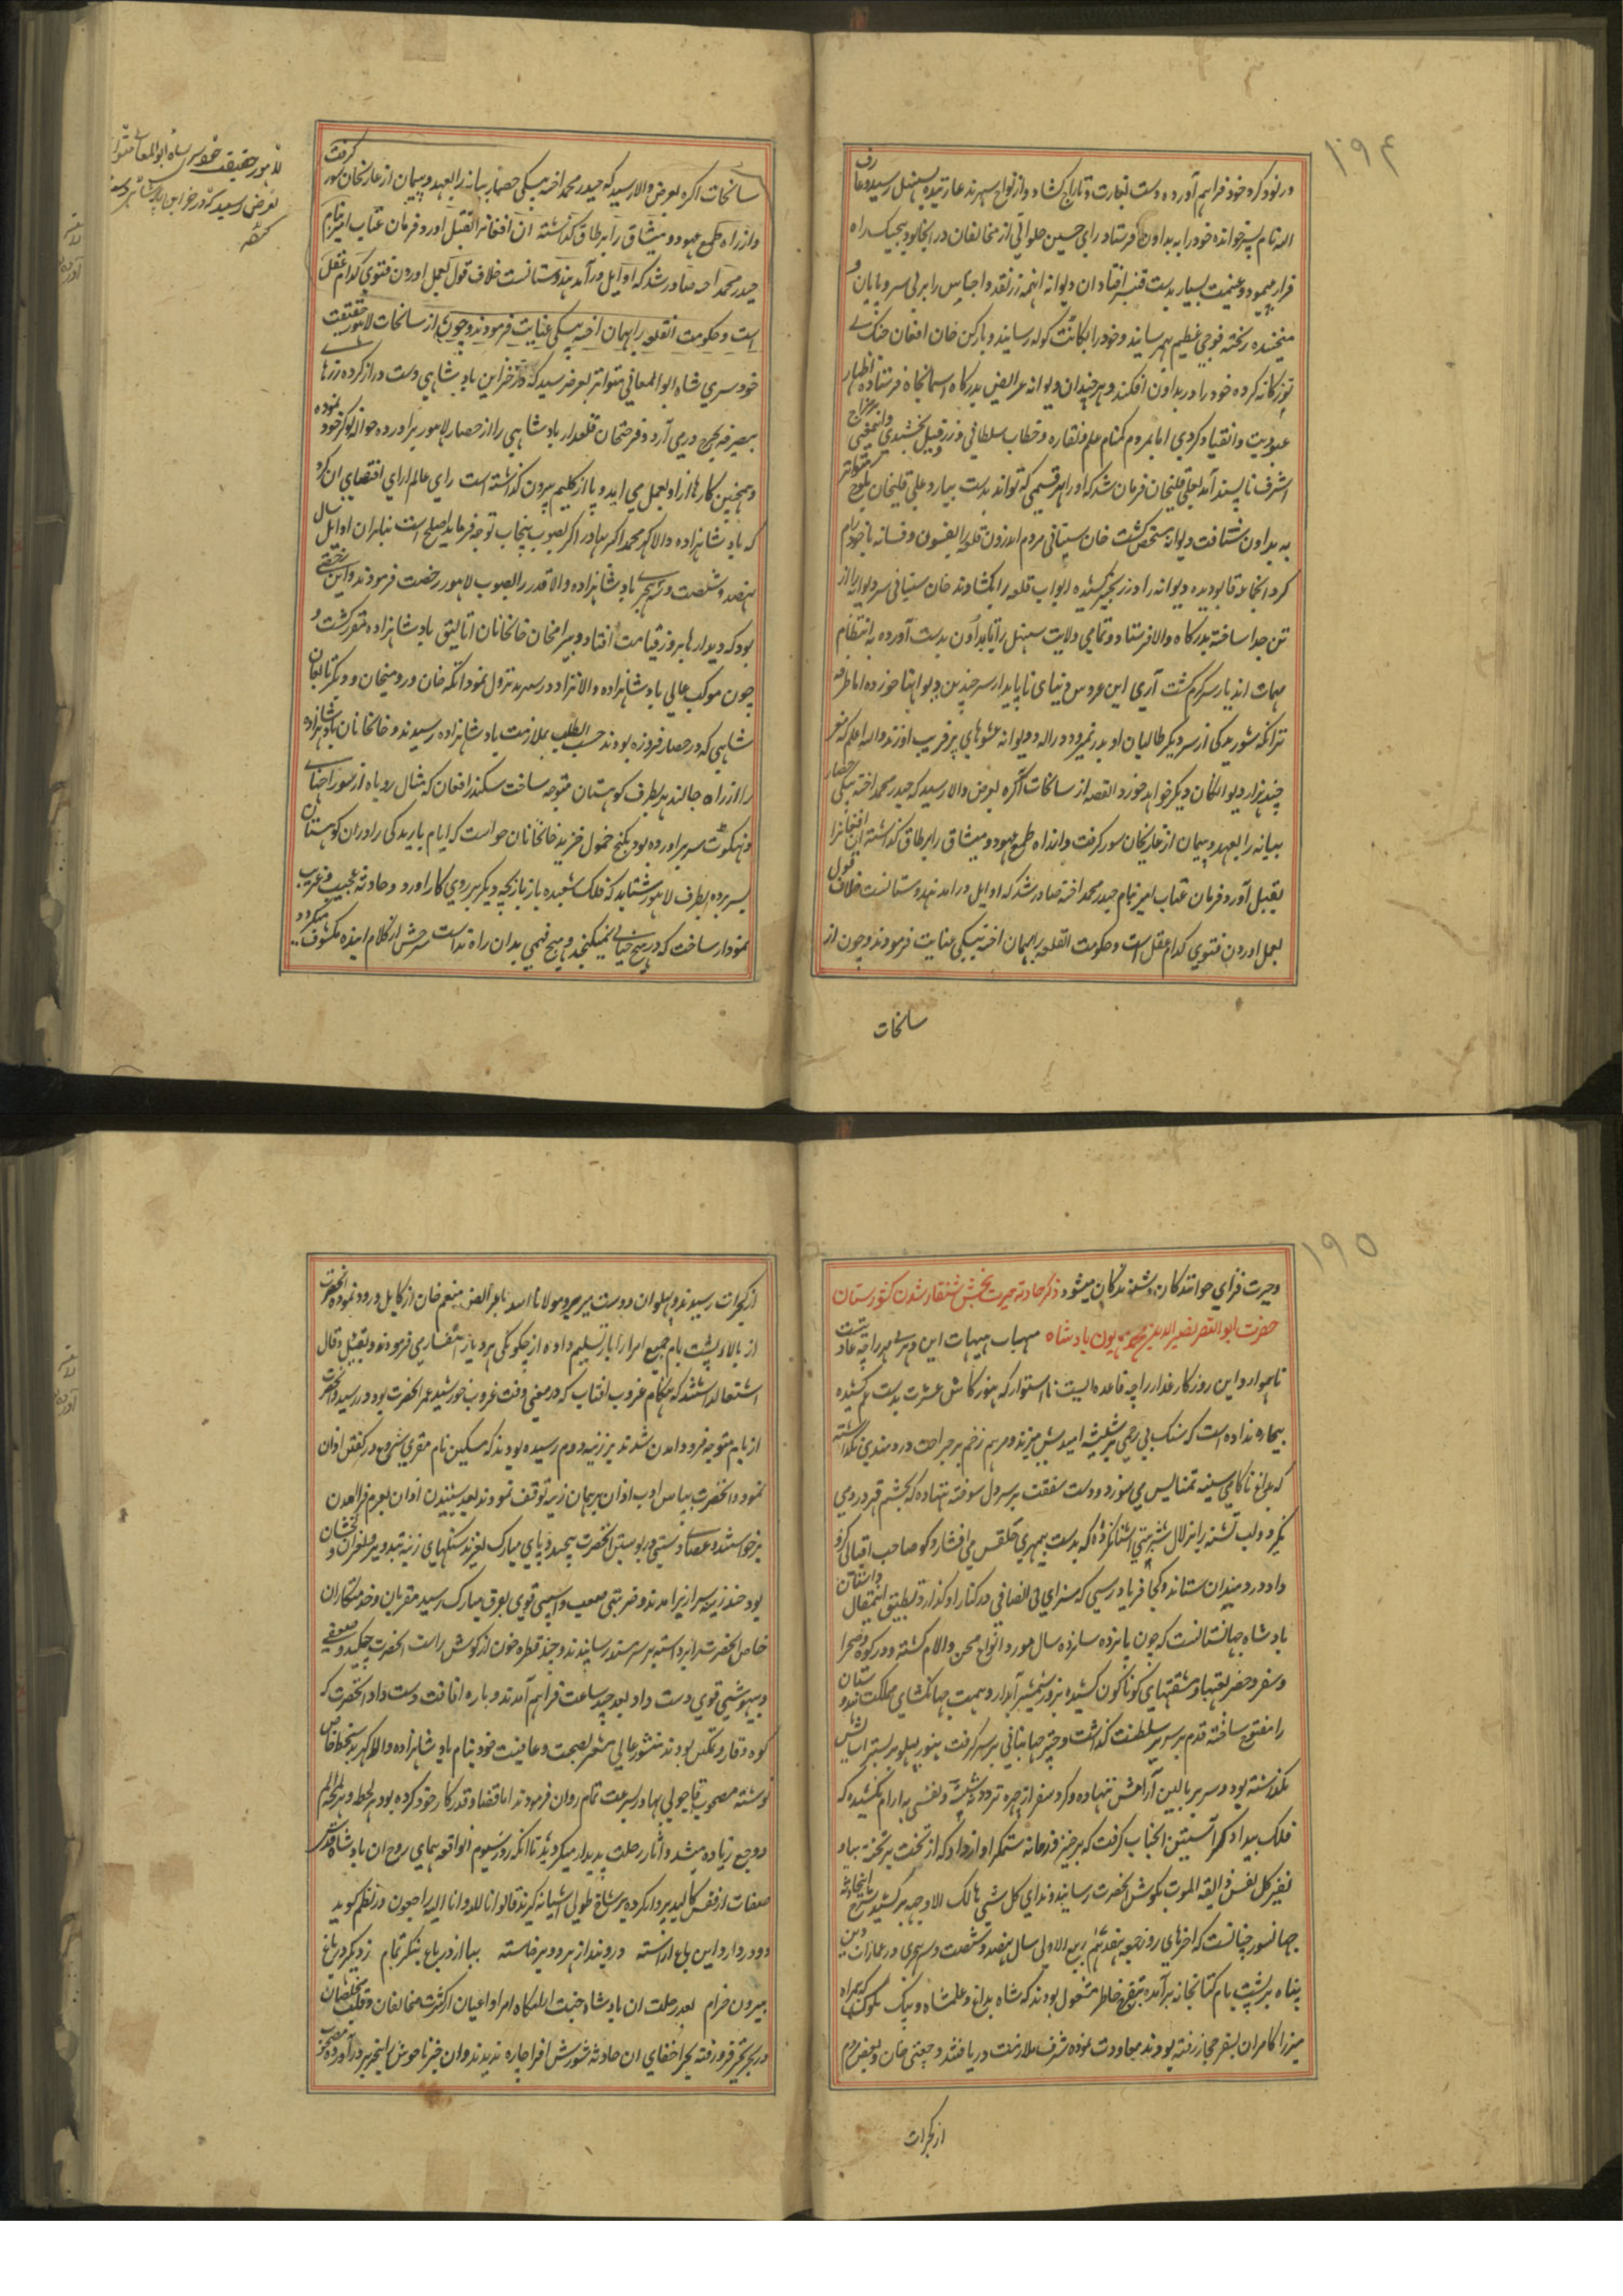 ۱۹۴
در نود کروه خود فراهم آورده دست بغارت و تاراج کشاد و از نواح سهرند غارتیده بسنبل رسید و عارف
الله نام پسر خوانده خود را به بداون فرستاد رای حسین جلوانی از مخالفان در انجا بود بجنک راه
فرار پیمود و غنیمت بسیار بدست قنبر افتاد ان دیوانه اینهمه زر نقد و اجناس را بر بی سر و پایان و
ریخته فوجی عظیم بهم رسانید و خود را بکانت کوله رسانید و با رکن خان افغان جنک
ترکانه کرده خود را در بداون افکند و هر چند ان دیوانه عرایض بدرکاه اسمانجاه فرستاده اظهار
عبودیت و انقیاد کردی اما بمردم کمنام علم و نقاره و خطاب سلطانی و زر فیل بخشیدی و اینمعنی بمزاج
اشرف ناپسند آمد بعلی قلیخان فرمان شد که او را بهر قسمی که تواند بدست بیارد و علی قلیخان
به بداون شتافت دیوانه متحصن کشت خان سیستانی مردم اندرون قلعه را بفسون و فسانه با خود رام
کرد انجماعه قابو دیده دیوانه را در زنجیر کشیده ابواب قلعه را بکشادند خان سیستانی سر دیوانه را از
تن جدا ساخته بدرکاه والا فرستاد و تمامی ولایت سنبهل را تا بداون بدست آورده به انتظام
مهمات اندیار سرکرم کشت آری این عروس دنیای ناپایدار سر چندین دیوانها خورده اما طرفه
تر انکه شوریدکی از سر دیکر طالبان او بدر نمیرود و والله اعلم که مغز
چند هزار دیوانکان دیکر خواهد خورد القصه از سانحات آکره بعرض والا رسید که حیدر محمد اخته بیکی حصار
بیانه را بعهد و پیمان از غازیخان سور کرفت و از راه طمع عهود و میثاق را بر طاق کذاشته ان افغانرا
بقتل آورد فرمان عتاب امیز بنام حیدر محمد اخته صادر شد که اوایل درامد هندوستانست خلاف قول
بعمل اوردن فتوی کدام عقل است و حکومت انقلعه را بهمان اخته بیکی عنایت فرمودند و چون از
سانحات
سانحات اکره بعرض والا رسید که حیدر محمد اخته بیکی حصار بیانه را بعهد و پیمان از غازیخان سور کرفت
و از راه طمع عهود و میثاق را بر طاق کذاشته ان افغانرا بقتل اورد و فرمان عتاب امیز بنام
حیدر محمد اخته صادر شد که اوایل درآمد هندوستانست خلاف قول بعمل اوردن فتوی کدام عقل
است و حکومت انقلعه را بهمان اخته بیکی عنایت فرمودند و چون از سانحات لاهور حقیقت
خودسری شاه ابوالمعانی متواتر بعرض رسید که در خزاین بادشاهی دست دراز کرده زرها
بیصرفه بخرج درمی آرد و فرحتخان قلعدار بادشاهی را از حصار لاهور براورده حواله نوکر خود نموده
و همچنین کارها از او بعمل می اید و پا از کلیم بیرون کذاشته است رای عالم ارای اقتضای ان کرد
که بادشاهزاده والا کهر محمد اکبر بهادر اکر بصوب پنجاب توجه فرماید اصلح است بنابران اوایل سال
نهصد و شصت و سه هجری بادشاهزاده والا قدر را بصوب لاهور رخصت فرمودند و این رخصتی
بود که دیدارها بروز قیامت افتاد و بیرامخان خانخانان اتالیق بادشاهزاده مقرر کشت و
چون موکب عالی بادشاهزاده والانژاد در سهرند نزول نمود اتکه خان و رومیخان و دیکر تابعان
شاهی که در حصار فیروزه بودند حسب الطلب بملازمت بادشاهزاده رسیدند و خانخانان بادشاهزاده
را از راه جالندر بطرف کوهستان متوجه ساخت سکندر افغان که مثال روباه از سوراخهای
سر براورده بود بکنج خمول خزید خانخانان خواست که ایام بارندکی را دران کوهستان
بسر برده بطرف لاهور شتابد که فلک شعبده باز بازیچه دیکر بر روی کار اورد و حادثه عجیب و غریب
نمودار ساخت که در هیچ خیالی نمیکنجد و هیچ فهمی بدان راه نداست سرحش از کلام اینده مکشوف میکردد
لاهور حقیقت خودسری شاه ابوالمعالی متواتر
بعرض رسید که در خزاین بادشاهی دست
۱۹۵
و حیرت فزای خوانندکان و شنوندکان میشود ذکر حادثه حیرت بخش شنقار شدن کشورستان
حضرت ابوالنصر نصیر الدین محمد همایون بادشاه هیهات هیهات این دهر بی مهر را چه عادتیست
ناهموار و این روزکار غدار را چه قاعده ایست نااستوار که هنوز کاس عشرت بدست غم کشیده
بیچاره نداده است که سنک بی رحمی بر شیشه امیدش میزند و مرهم زخم بر جراحت دردمندی نکذاشته
که بداغ ناکامی سینه تمنایش می سوزد و دست شفقت بر سر دل سوخته ننهاده که بخشم قهر در روی
نکرد و لب تشنه را بزلال شربتی اشنا نکرده که بدست بیمهری حلقش می افشارد کو صاحب اقبالی که
داد دردمندان ستاند و کجا فریادرسی که سزای بی انصافی در کنار او کذارد و تطبیق اینمقال داستان
بادشاه جهانستانست که چون پانزده سانزده سال مورد انواع محن و الام کشته و در کوه و صحرا
و سفر و حضر تعبها و مشقتهای کوناکون کشیده بزور شمشیر آبدار و همت جهانکشای مملکت هندوستان
را مفتوح ساخته قدم بر سریر سلطنت کذاشت و چتر جهانبانی بر سر کرفت هنوز پهلو بر بستر اسایش
نکذاشته بود و سر بر بالین آرامش ننهاده و کرد سفر از چهره تردد نشسته و نفسی به ارام نکشیده که
فلک بیدادکر آستین انجناب کرفت که برخیز و زمانه ستمکر اواز داد که از تخت بر تخته بیا و
نفیر کل نفس ذایقه الموت بکوش انحضرت رسانید و ندای کل شیئ هالک الا وجهه برکشید شرح اینحادثه
جهانسوز چنانست که اخرهای روز جمعه هفدهم ربیع الاول سال نهصد و شصت و سه هجری در عمارات دین
پناه بر پشت بام کتابخانه برآمده بتفریح خاطر مشغول بودند که شاه بداغ و علمشاه و بیک ملوک که همراه
میرزا کامران بسفر حجاز رفته بودند معاودت نموده شرف ملازمت دریافتند و چغتی خان و بعضی مردم
از کجرات
از کجرات رسیدند و پهلوان دوست میر بر و مولانا اسد با عرایض منعم خان از کابل ورود نموده انحضرت
از بالاء پشت بام جمیع امرا را بار تسلیم داده از چکونکی هر دیار استفساری فرمودند و بقیل و قال
اشتغال داشتند که هنکام غروب افتاب که در معنی وقت غروب خورشید عمر انحضرت بود در رسید و انحضرت
از بام متوجه فرود امدن شدند بر زینه دوم رسیده بودند که مسکین نام مقری شروع در کفتن اذان
نمود و انحضرت بپاس ادب اذان بر همان زینه توقف نمودند بعد شنیدن اذان بعزم فرو امدن
برخواستند و عصای دستی در پوستین انحضرت پیچید و پای مبارک لغزید سنکهای زینه تند و پر لغزان و لخشان
بود چند زینه سرازیر امدند و ضربتی صعب و آسیبی قوی بفرق مبارک رسید مقربان و خدمتکاران
خاص انحضرت را برداشته بر سر مسند رسانیدند و چند قطره خون از کوش راست انحضرت چکید و ضعفی
و بیهوشی قوی دست داد بعد چند ساعت فراهم آمدند و باره افاقت دست داد انحضرت که
کوه وقار و تمکین بودند منشور عالی مشعر بصحت و عافیت خود بنام بادشاهزاده والا کهر بدستخط خاص
نوشته مصحوب قا چولی بهادر بسرعت تمام روان فرمودند اما قضا و قدر کار خود کرده بود هر لحظه و هر لمحه الم
و وجع زیاده میشد و آثار رحلت پدیدار میکردید تا انکه روز سیوم انواقعه همای روح ان بادشاه قدسی
صفات از قفس کالبد پرواز کرده بر شاخ طوبی اشیانه کزید قالوا انا لله و انا الیه راجعون در نظم کوید
دو در دارد این باغ اراسته درو بند از هر دو برخاسته بیا از در باغ بنکر تمام ز دیکر در باغ
بیرون خرام بعد رحلت ان بادشاه جنت ارامکاه امرا و اعیان از کثرت مخالفان و قلت مخلصان
در بحر تحیر فرو رفته بجز اخفای ان حادثه شورش افزا چاره ندیدند و ان خبر ناخوش